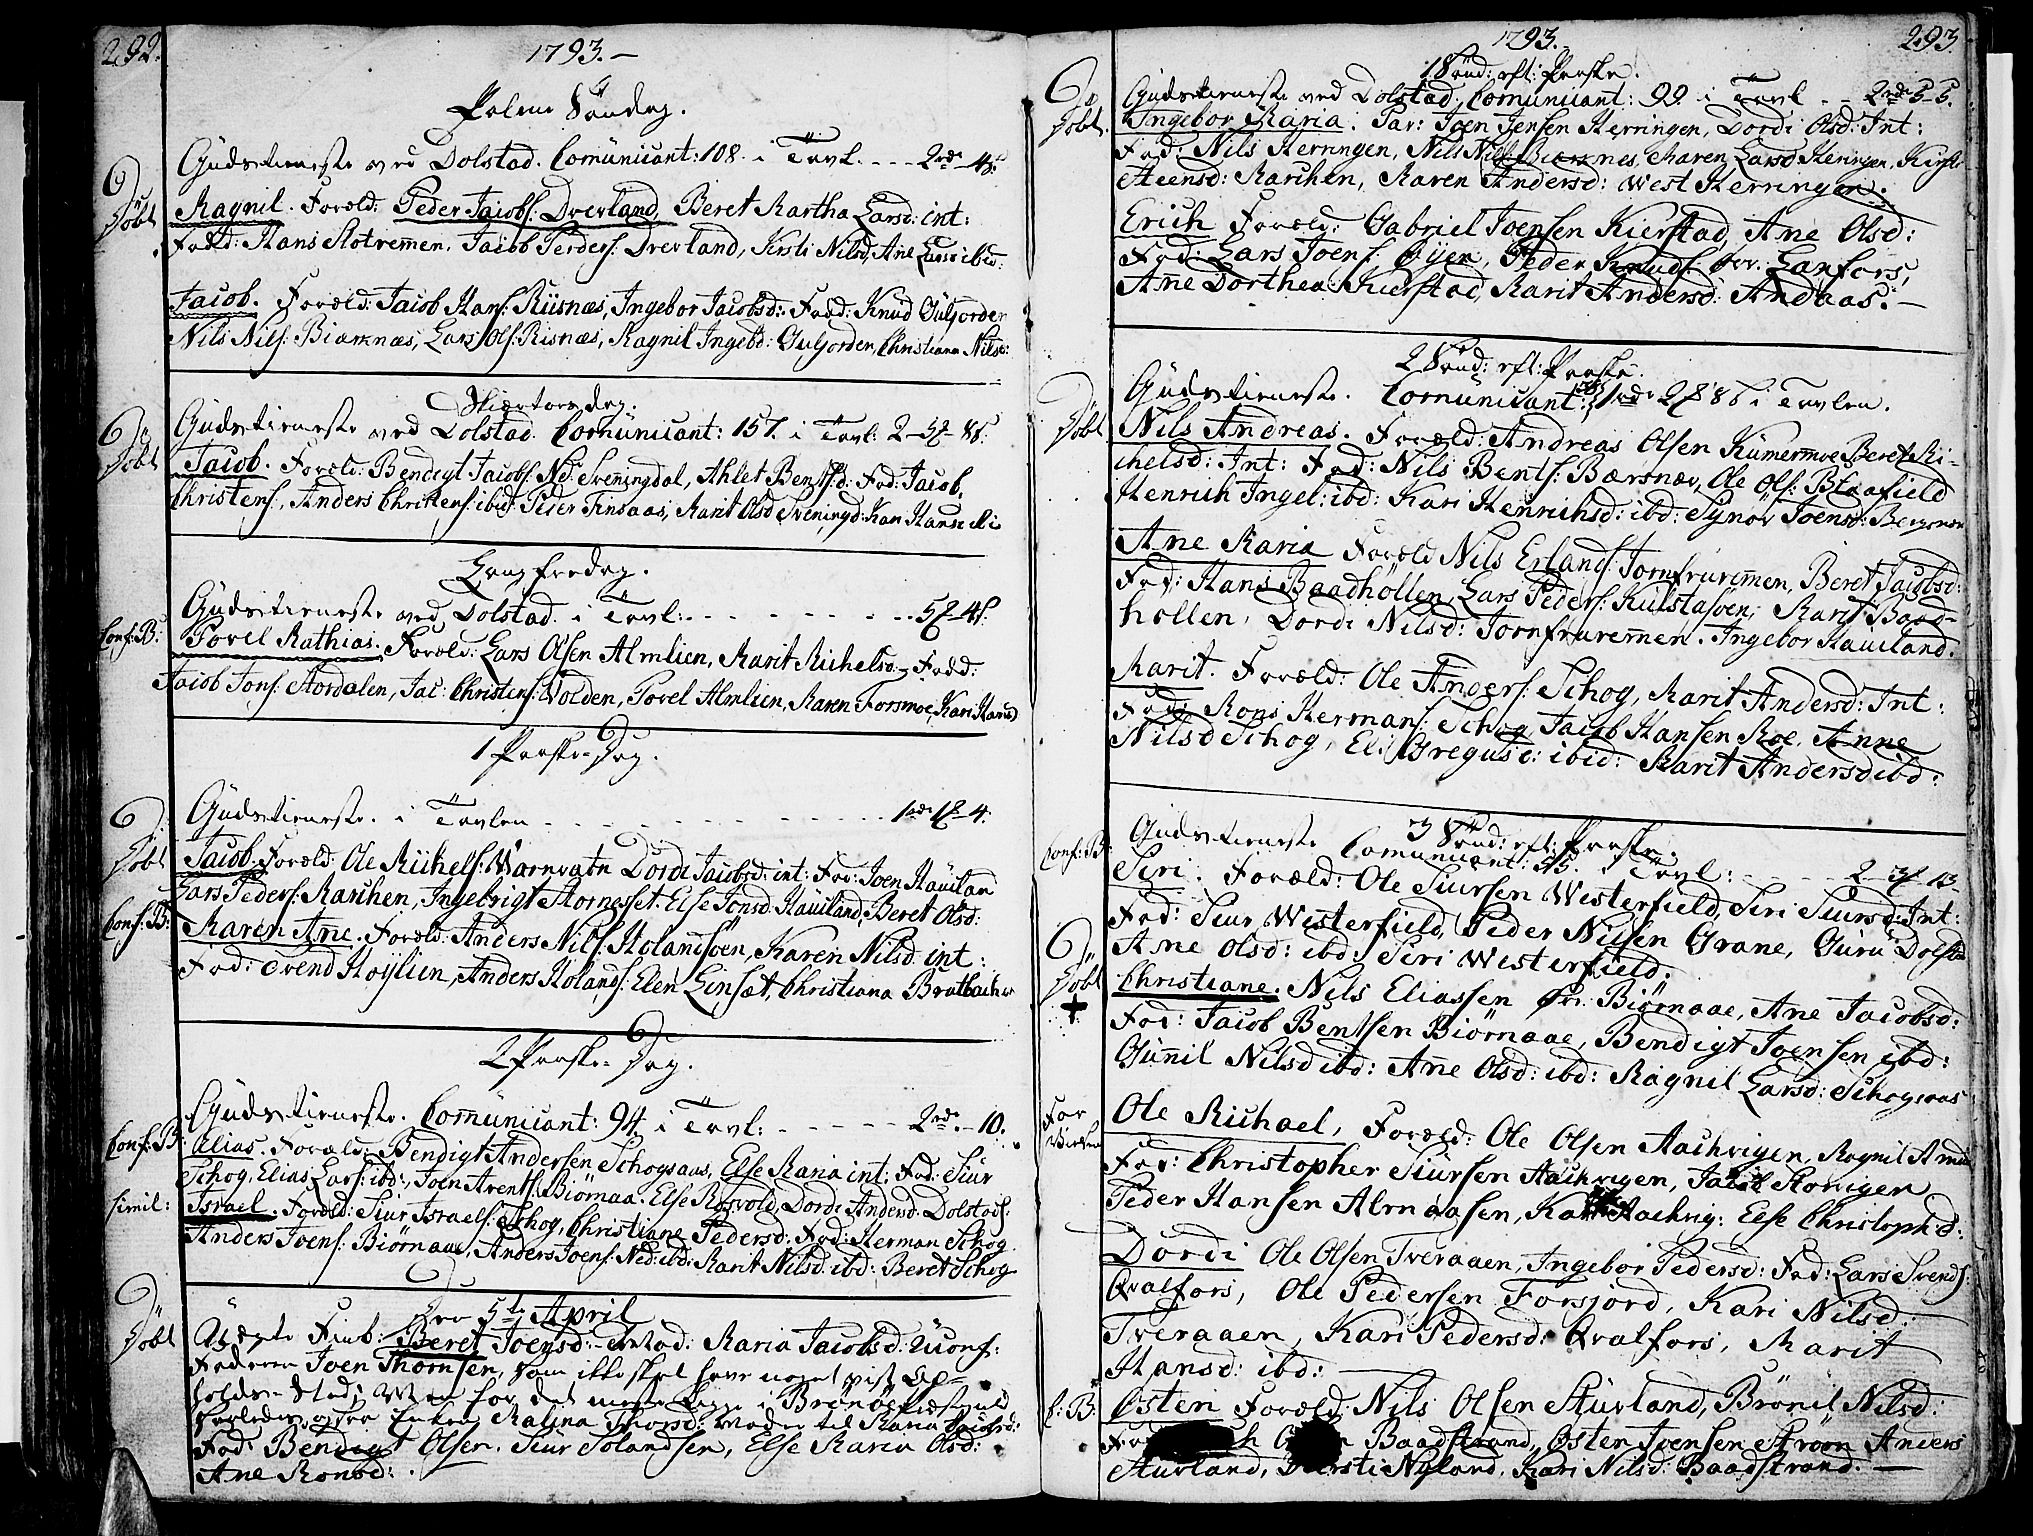 292.
1793.
Palme Søndag.
Gudstieneste ved Dolstad. Comunicant: 108. i Tavl. - - - 2rd - 4s:
Døbt
Ragnil. Foræld: Peder Jacobs: Drevland, Beret Martha Larsd: int:
Fad: Hans Slotremen. Jacob Peders: Drevland, Kirsti Nilsd, Ane Larsd ibid:
Jacob. Foræld: Jacob Hans: Riisnæs, Ingebor Jacobsd: Fadd: Knud Gulsorden
Nils Nils: Biærnæs, Lars Ols: Risnæs, Ragnil Ingebd: Gulsorden, Christiana Nilsd:
Skiertorsdag.
Gudstieneste ved Dolstad. Comunicant: 157. i Tavl: 2-
Døbt
Jacob. Foræld: Bendigt Jacobs: Ned: Sveningdal, Ahlet Bentsd: Fad: Jacob
Christens:, Anders Christens: ibid: Peder Finsaas, Marit Olsd Sveningd: Kari Hansd
Langfredag.
Gudstieneste ved Dolstad. i Tavl: - - - - - - -
Conf: B:
Povel Mathias. Foræld: Lars Olsen Almlien, Marit Michelsd: Fadd:
Jacob Jons: Stordalen, Jac: Christens: Volden, Povel Almlien, Maren Forsmoe, Kari Hansd
1 Paaske-Dag.
Gudstieneste. i Tavlen - - - - - - - - - - - 1rd
Døbt
Jacob: Foræld: Ole Michels: Varnvatn Dordi Jacobsd: int: Fad: Joen Hauiland
Lars Peders: Marchen, Ingebrigt Stornesset. Else Jonsd. Hauiland, Beret Olsd:
Conf: B:
Maren Ane. Foræld: Anders Nils: Holandsøen, Karen Nilsd: int:
Fad: Svend Høylien, Anders Holands: Elen Linsæt, Christiana Bratbachen
2 Paaske-Dag.
Gudstieneste. Comunicant: 94. i Tavl: - - - - - 2rd - 10.
Conf: B:
Elias. Foræld: Bendigt Andersen Schogsaas, Else Maria int: Fad: Siur
Schog, Elias Lars: ibd:, Joen Arents: Biørnaa. Else Dordi Andersd: Dolstad:
simil:
Israel. Foræld: Siur Israels: Schog, Christiane Pedersd: Fad: Herman Schog
Anders Joens: Biørnaae, Anders Joens: Ned: ibd: Marit Nilsd: ibd: Beret Schog
Den 5te April
Døbt
Uægte Pineb: Beret Joensd: Maria Jacobsd:
Faderen Joen Thomsen, som ikke skal have noget vist Op-
holds-Sted, i Brønøe
Malena Thorsd: Moder til Maria Jacobsd:
Fad: Bendigt Olsen. Siur Tolandsen, Else Maria Olsd:
Ane Monsd: .
1793.
293.
1 Sønd: eft: Paaske.
Gudstieneste ved Dolstad. Comunicant: 99 i Tavl - 2rd
Døbt
Ingebor Maria. Par: Joen Jensen Herringen, Dordi Olsd: Int:
Fad: Nils Herringen, Nils Nils: Biærnæs, Maren Larsd Heringen, Kirsti
Steensd: Marchen, Maren Andersd: West Herringen.
Erich Foræld: Gabriel Joensen Kierstad, Ane Olsd:
Fad: Lars Joens: Øyen, Peder Knuds: Øv: Lanfors,
Ane Dorthea Kierstad, Marit Andersd: Andaas.
2 Sønd: eft: Paaske.
Gudstieneste. Comunicant: i Tavlen.
Døbt
Nils Andreas. Foræld: Andreas Olsen Kumermoe Beret Mi-
chelsd: Int: Fad: Nils Bents: Bærsnæv, Ole Ols: Blaafield
Henrich Ingel: ibd: Kari Henrichsd: ibd: Synøv Joensd:
Ane Maria Foræld Nils Erlands: Jomfruremen, Beret Jacobsd:
Fad: Hans Baadhollen, Lars Peders: Kulstasøen, Marit Baad-
hollen, Dordi Nilsd: Jomfruremen. Ingebor Hauiland.
Marit. Foræld: Ole Anders: Schog, Marit Andersd: Int:
Fad: Mons Hermans: Schog, Jacob Hansen Moe. Anne
Nilsd Schog, Eli Gregusd: ibid: Marit Andersd ibd:
3 Sønd: eft: Paaske.
Gudstieneste Comunicant: 95. i Tavl: - - - - 2
Conf: B:
Siri. Foræld: Ole Siursen Westerfield, Siri Siursd: Int:
Fad: Siur Westerfield, Peder Nilsen Grane, Guru Dolstad
Ane Olsd: ibd: Siri Westerfield:
Døbt
Christiane. Nils Eliassen Øv: Biørnaae, Ane Jacobsd:
Fad: Jacob Bentsen Biørnaae, Bendigt Joensen ibd:
Gunil Nilsd ibd: Ane Olsd: ibd: Ragnil Larsd: Schogsaas
Ole Michael, Foræld: Ole Olsen Aachvigen, Magnil
Fad: Christopher Siursen Aachvigen, Jacob
Peder Hansen Almaasen, Aachvig: Else Christophd:
Dordi Ole Olsen Tveraaen, Ingebor Pedersd: Fad: Lars Svends:
Qvalfors, Ole Pedersen Forsjord, Kari Nilsd:
Tveraaen, Kari Pedersd: Qvalfors, Marit
Hansd: ibd:
C: B:
Østen Foræld: Nils Olsen Stuvland, Brønil Nilsd:
Fad Baadstrand, Østen Joensen Anders
Stuvland, Kirsti Nyland, Kari Nilsd: Baadstrand.